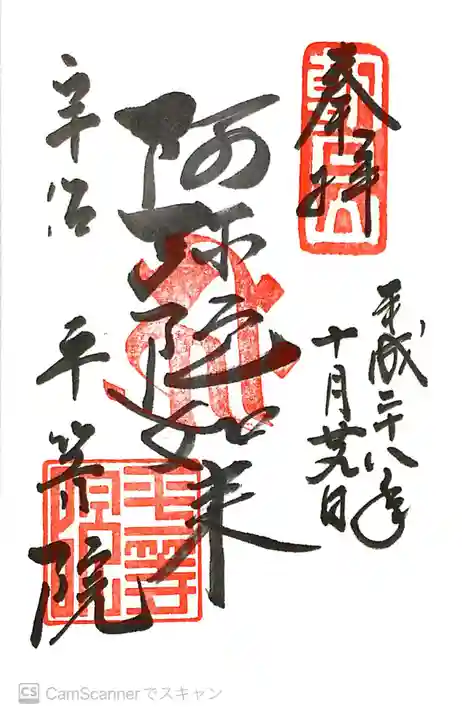 奉拝
平成二十八年
十月廿九日
阿弥陀如来
宇治
平等院
平等院
CamScannerでスキャン